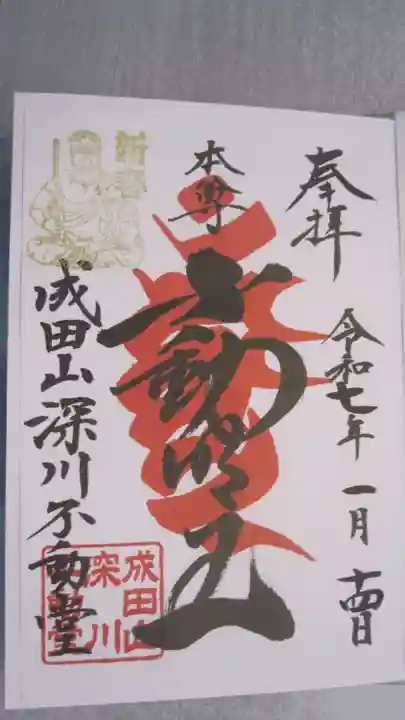 奉拝
令和七年 一月 十四日
本尊
不動明王
新春
成田山深川不動堂
成田山
深川
不動堂